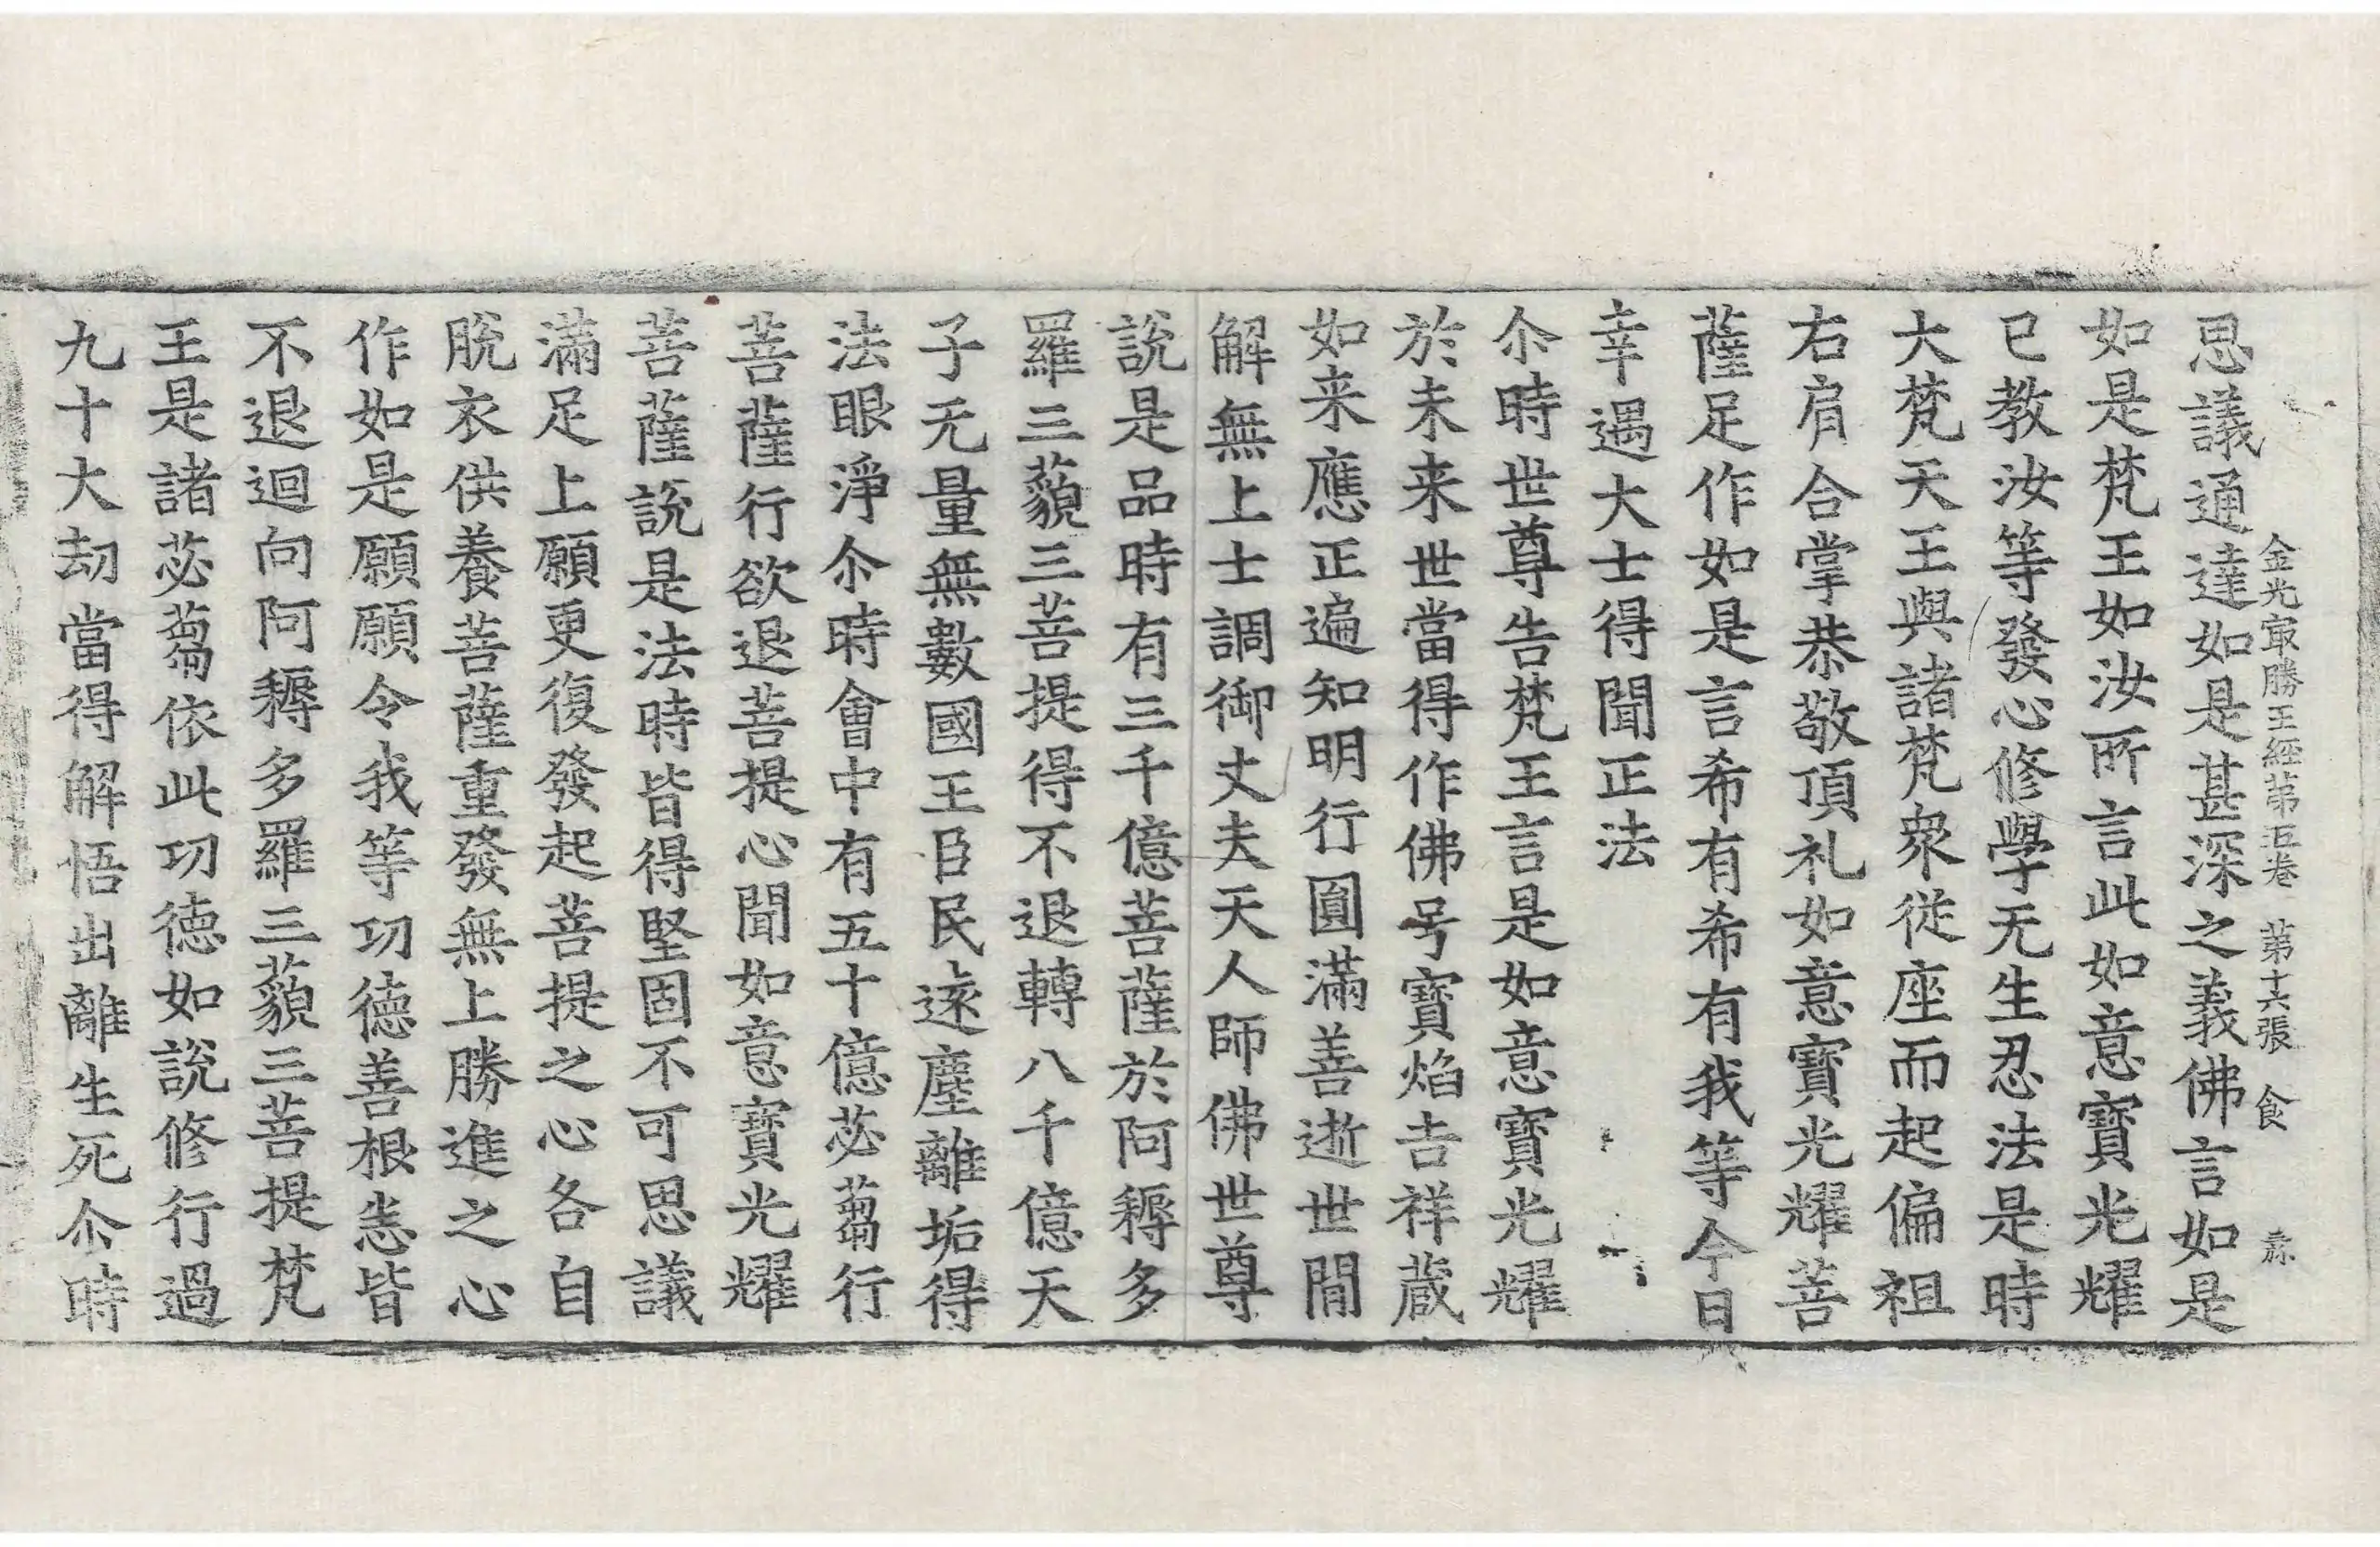 金光㝡勝王經苐五卷　苐十六張　食
思議通達如是甚深之義佛言如是
如是梵王如汝所言此如意寶光耀
已教汝等發心修學无生忍法是時
大梵天王與諸梵衆從座而起偏袒
右肩合掌恭敬頂礼如意寶光耀菩
薩足作如是言希有希有我等今日
幸遇大士得聞正法
尒時世尊告梵王言是如意寶光耀
於未来世當得作佛号寶焰吉祥蔵
如来應正遍知明行圓滿善逝世閒
解無上士調御丈夫天人師佛世尊
說是品時有三千億菩薩於阿耨多
羅三藐三菩提得不退轉八千億天
子无量無數國王臣民遠塵離垢得
法眼淨尒時會中有五十億苾蒭行
菩薩行欲退菩提心聞如意寶光耀
菩薩說是法時皆得堅固不可思議
滿足上願更復發起菩提之心各自
脫衣供養菩薩重發無上勝進之心
作如是願願令我等功德善根悉皆
不退迴向阿耨多羅三藐三菩提梵
王是諸苾蒭依此功德如說修行過
九十大劫當得解悟出離生死尒時